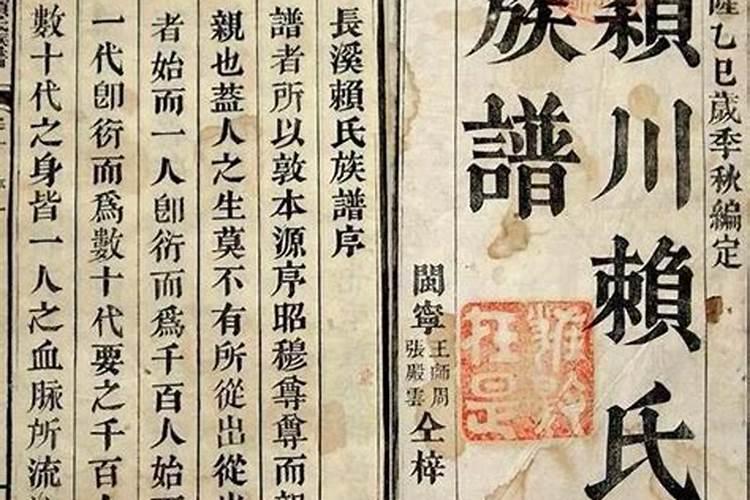 隆乙巳歲季秋編定
潁川賴氏
族譜
閩寧王師周張殿雲仝梓
長溪賴氏族譜序
譜者所以敦本源序昭穆尊尊而親
親也蓋人之生莫不有所從出從出
者始而一人卽衍而爲千百人始而
一代卽衍而爲數十代要之千百人
數十代之身皆一人之血脉所流